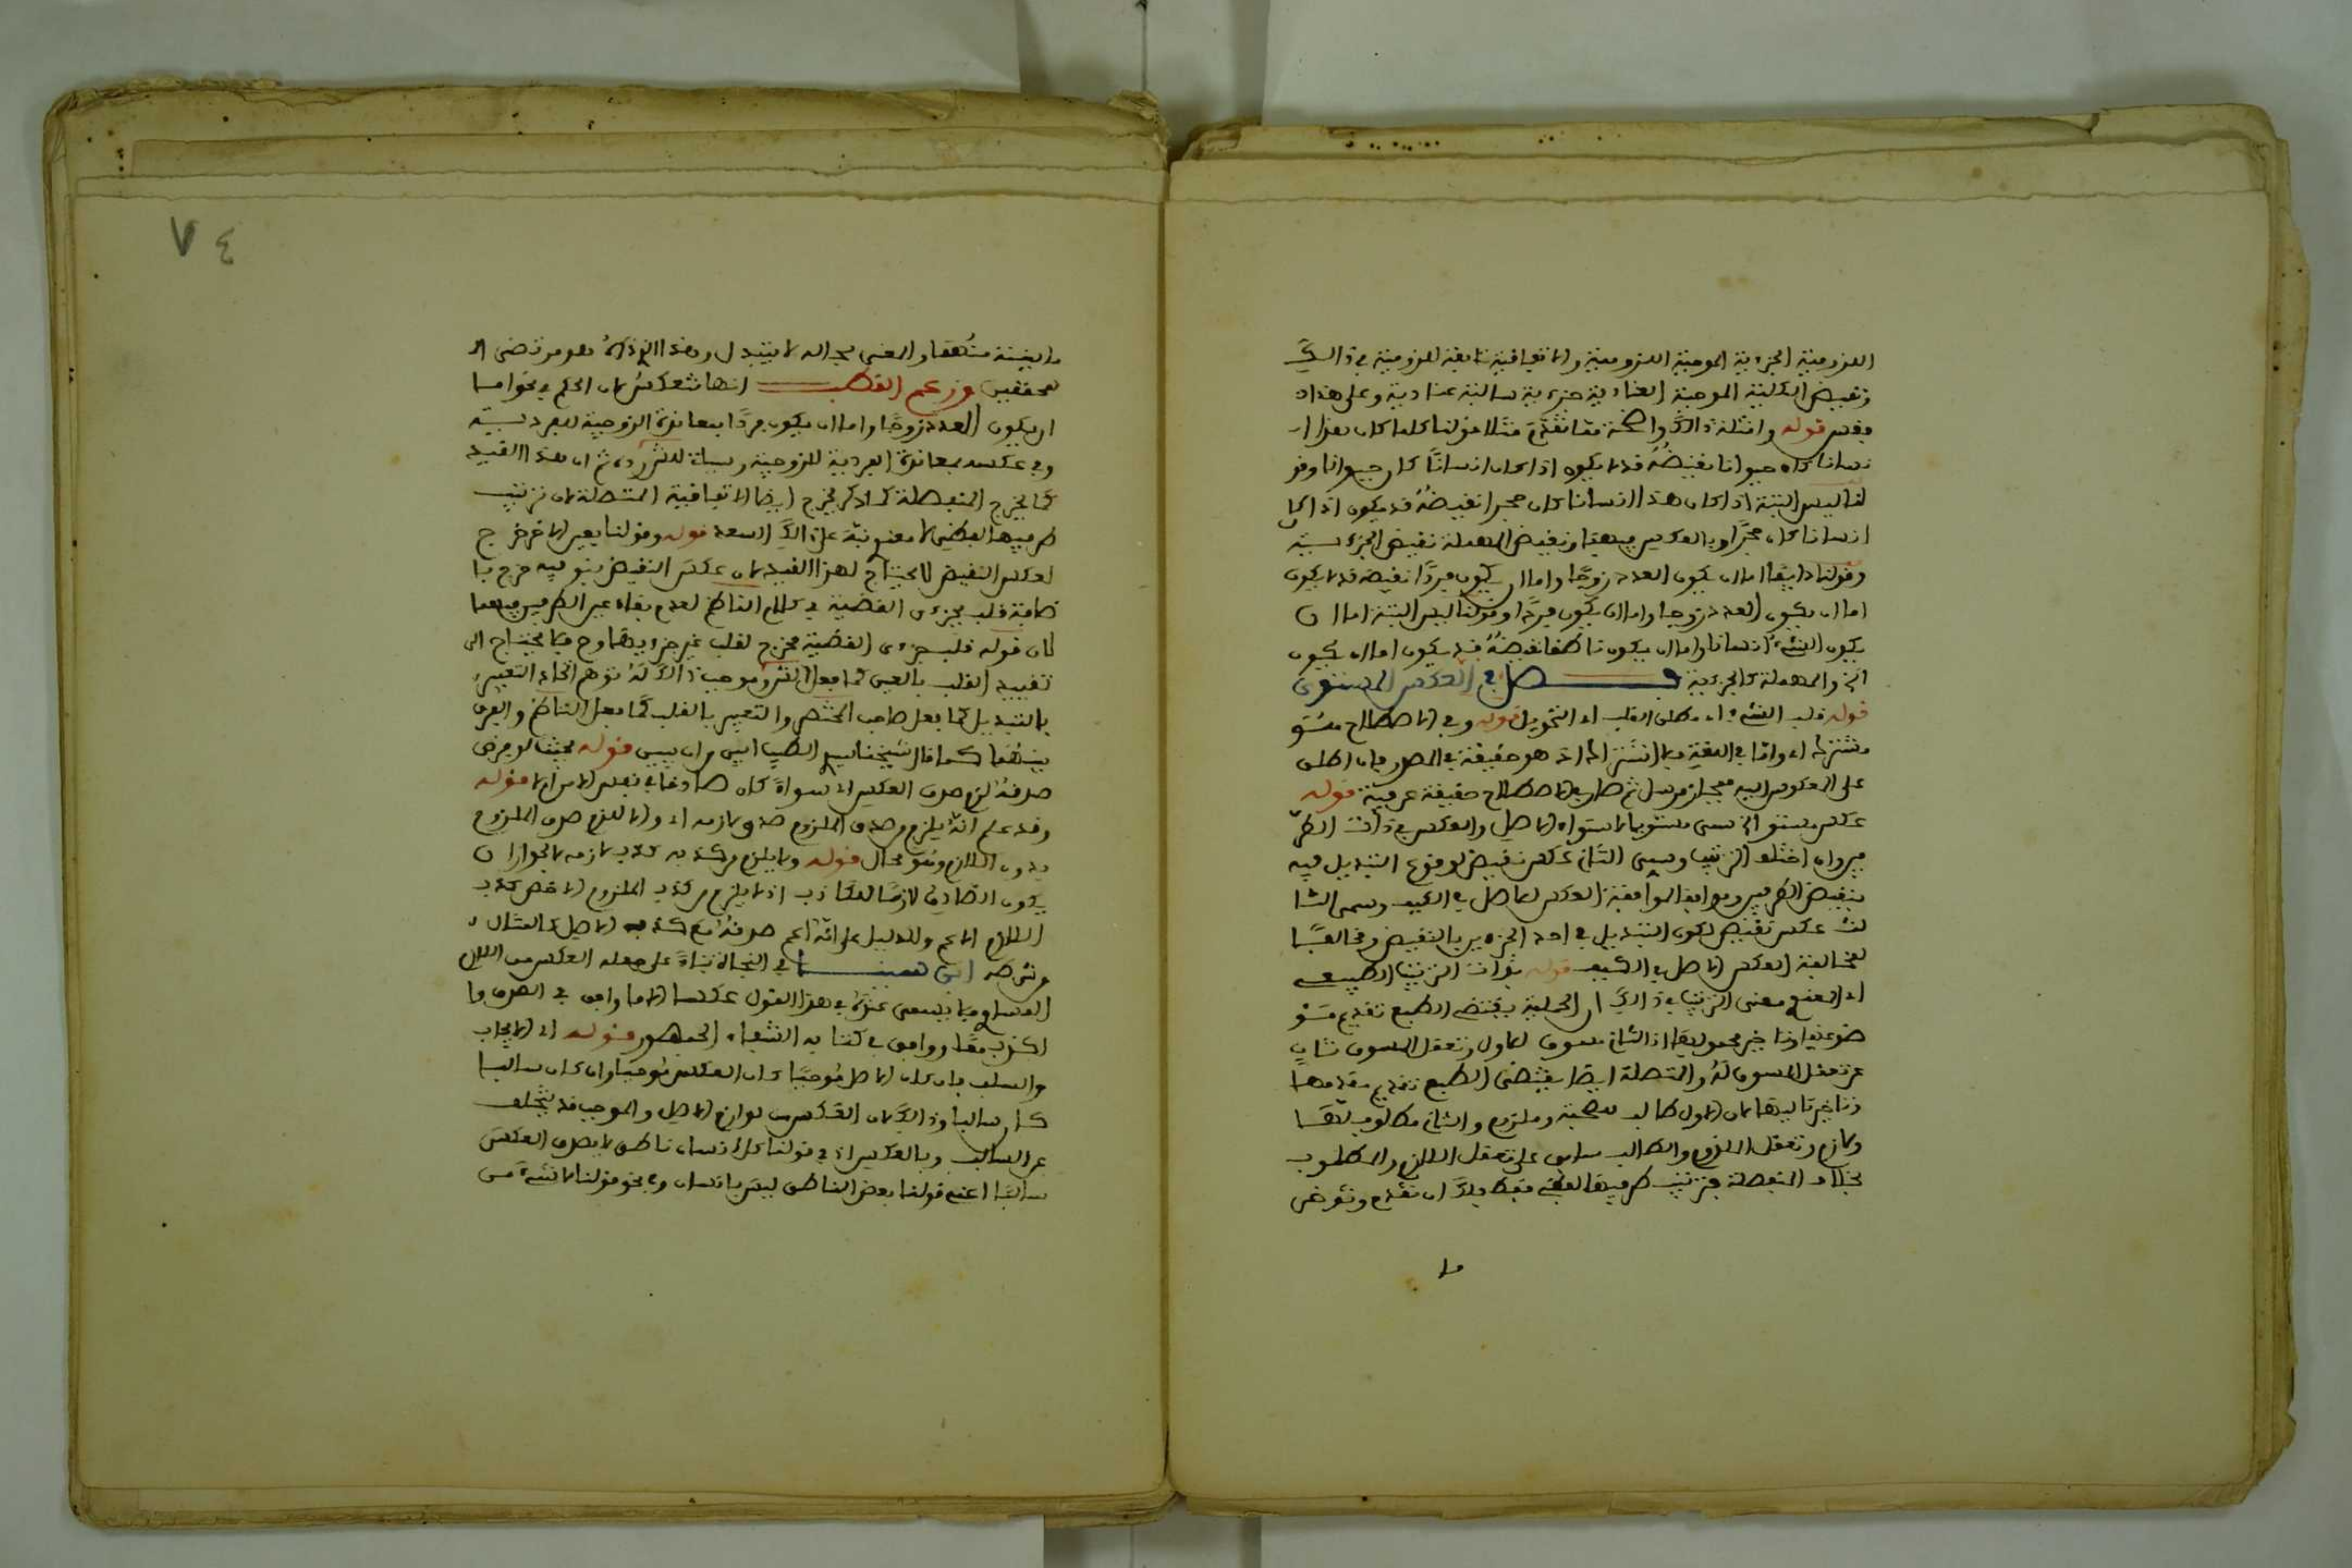 اللزومية الجزءية الموجبة اللزومية والاتفاقية نقيضة للزومية في ذالك
ونقيض الكلية الموجبة العنادية جزءية سالبة عنادية وعلى هذا
فقس قوله وامثلة ذالك واضحة مما تقدم مثلا قولنا كلما كان هذا ا
نسانا كان حيوانا نقيضه قد لا يكون اذا كان انسانا كان حيوانا وقو
لنا ليس البتة اذا كان هذا انسانا كان حجرا نقيضه قد يكون اذا كا
انسانا كان حجرا وبالعكس فيهما ونقيض المهملة نقيض الجزءية
وقولنا دايما اما ان يكون العدد زوجا واما ان يكون فردا نقيضه قد لا يكون
اما ان يكون العدد زوجا واما ان يكون فردا وقولنا ليس البتة اما ان
يكون الشيء انسانا واما ان يكون ناطقا نقيضه قد يكون اما ان يكون
الخ والمهملة كالجزءية فصل في العكس المستوي
قوله قلب الشيء اء مطلق القلب اء التحويل قوله وفي الاصطلاح مستو
مشترك اء واما في اللغة فلا اشتراك اذ هو حقيقة في المصدر فان اطلق
على المعكوس اليه فمجاز مرسل ثم صار في الاصطلاح حقيقة عرفية قوله
عكس مستو الخ سمي مستويا لاستواء الاصل والعكس في ذات الطر
فين وان اختلف الترتيب وسمي الثاني عكس نقيض لوقوع التبديل فيه
بنقيض الطرفين وموافقا لموافقة العكس للاصل في الكيف وسمي الثا
لث عكس نقيض لكون التبديل في احد الجزءين بالنقيض ومخالفا
لمخالفة العكس الاصل في الكيف قوله بذات الترتيب الطبيعي
اء المعنوي معنى الترتيب في ذالك ان الحملية يقتضي الطبع تقديم مو
ضوعها وتاخير محمولها اذ الثاني مسوق للاول وتعقل المسوق ثان
عن تعقل المسوق له والمتصلة ايضا يقتضي الطبع تقديم مقدمها
وتاخير تاليها لان الاول طالب للصحبة وملزوم والثاني مطلوب لها
ولازم وتعقل الملزوم والطالب سابق على تعقل اللازم والمطلوب
بخلاف المنفصلة فترتيب طرفيها لفظي فقط فلك ان تقدم وتوخر
ما
٧٤
ما بينته منهما والمعنى بحاله لا يتبدل وهذا الذي ذكره هو مرتضى ا
لمحققين وزعم القطب انها تنعكس لان الحكم في نحو اما
ان يكون العدد زوجا واما ان يكون فردا بمعاندة الزوجية للفردية
وفي عكسه بمعاندة الفردية للزوجية ثم ان هذا القيد
كما يخرج المنفصلة كما ذكر يخرج ايضا الاتفاقية المتصلة لان ترتيب
طرفيها لفظي لا معنوي نبه على ذالك السعد قوله وقولنا بعين الاخر خرج
لعكس النقيض لا يحتاج لهذا القيد لان عكس النقيض بنوعيه خرج با
ضافة قلب جزءي القضية في كلام الناظم لعدم بقاء عين الطرفين فيهما
لان قوله قلب جزءي القضية مخرج لقلب غير جزءيها وح فلا يحتاج الى
تقييد القلب بالعين كما فعل وموجب ذالك له توهم اتحاد التعبير
بالتبديل كما فعل صاحب المختصر والتعبير بالقلب كما فعل الناظم والفرق
بينهما كما قال شيخنا الطيب ابين من ان يبين قوله بحيث لو فرض
صدقه لزم صدق العكس اء سواء كان صادقا في نفس الامر ام لا قوله
وقد علم انه يلزم من صدق الملزوم صدق لازمه اء والا للزم صدق الملزوم
بدون اللازم وهو محال قوله ولا يلزم من كذبه كذب لازمه لجواز ان
يكون الصادق لازما للكاذب اذ لا يلزم من كذب الملزوم الاخص كذب
اللازم الاعم والدليل على انه اعم صدقه مع كذب الاصل كالمثال
وشرطه ابن سينا في النجاة بناء على جعله العكس من اللازم
المساوي فلا يسمى عنده في هذا القول عكسا الا ما وافق في الصدق وا
لكذب معا ووافق في كتابه الشفاء الجمهور قوله اء الايجاب
والسلب فان كان الاصل موجبا كان العكس موجبا وان كان سالبا
كان سالبا وذالك لان العكس من لوازم الاصل والموجب قد يتخلف
عن السالب وبالعكس اذ في قولنا كل انسان ناطق لا يصدق العكس
سالبا اعني قولنا بعض الناطق ليس بانسان وفي نحو قولنا لا شيء من